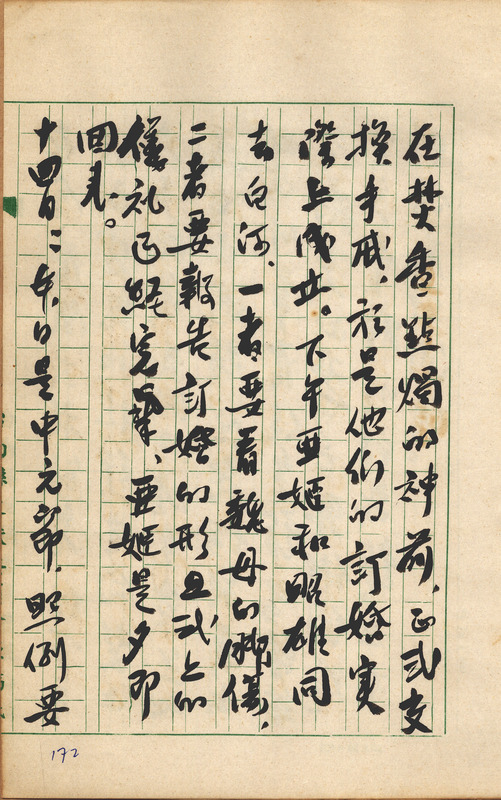 在焚香點燭的神前、正式交
換手戒、於是他們的訂婚実
際上成立。下午亜姬和昭雄同
去白河、一者要看魏母的脚、
二者要報告訂婚的形且式上的
儀礼已経完畢、亜姬是夕即
回来。
十四日：今日是中元節、照例要
172